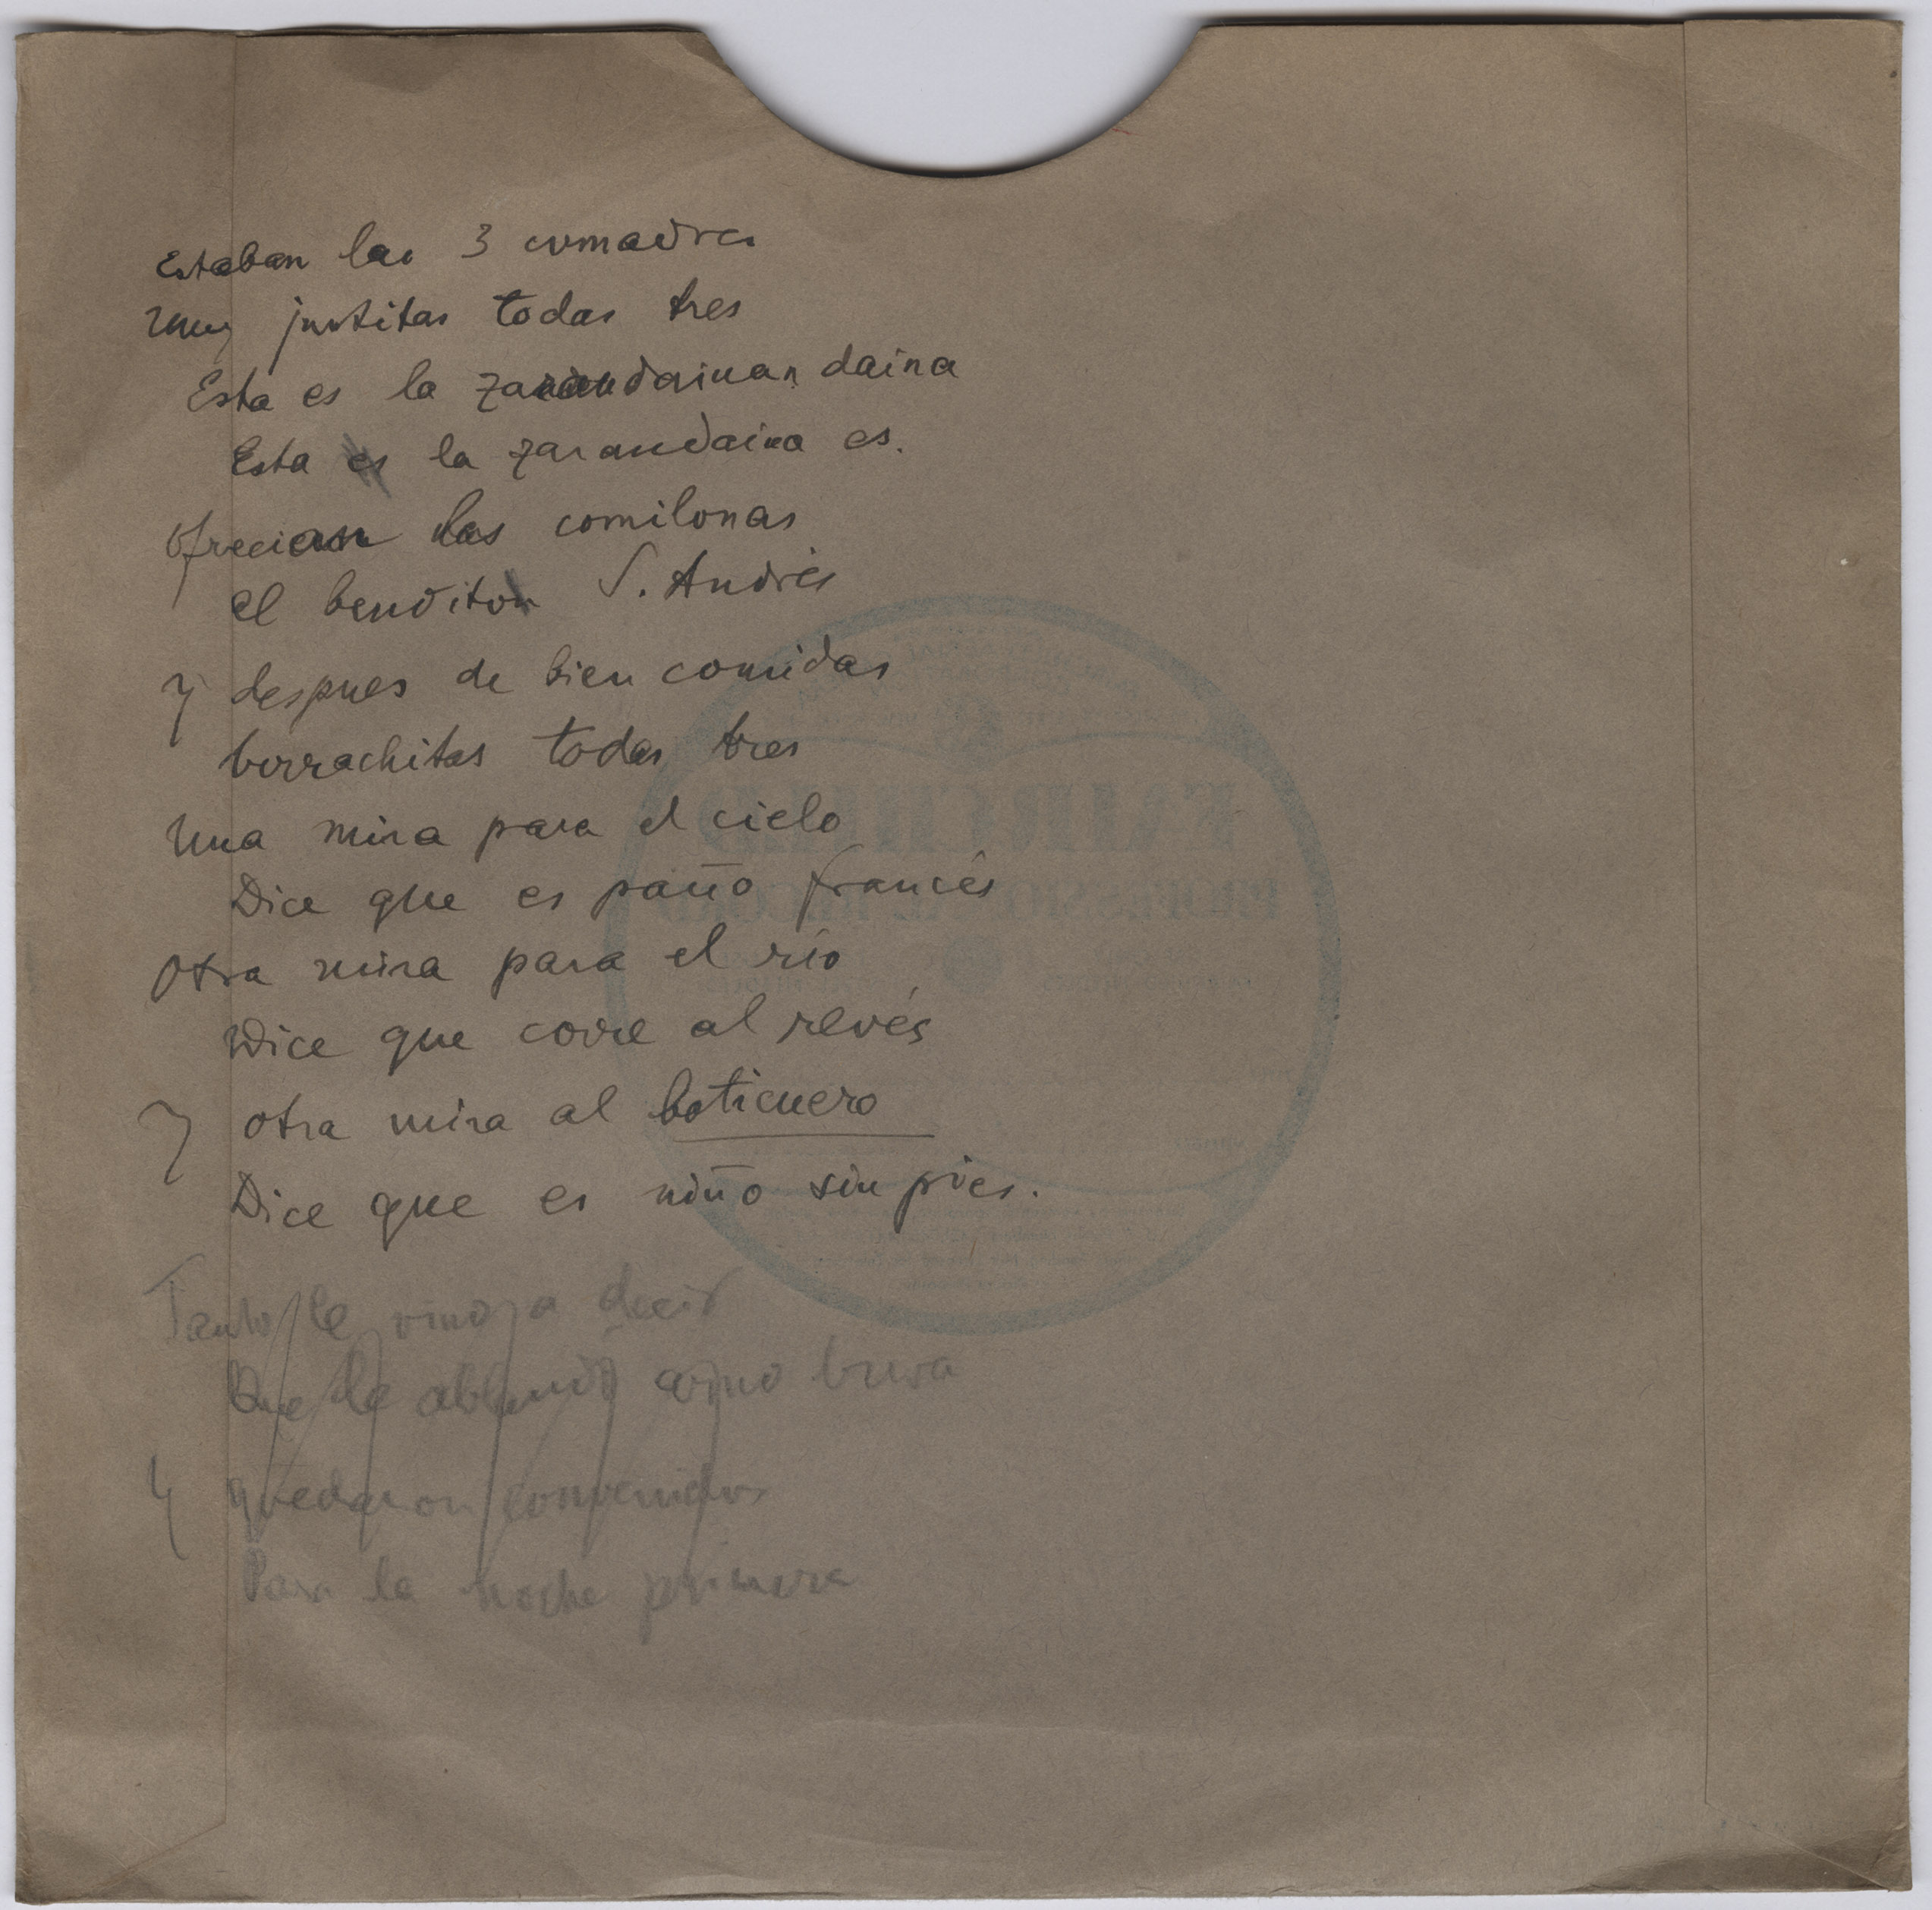 Estaban las 3 comadres
Muy justitas todas tres
Esta es la zarandainan daina
Esta es la zarandaina es.
Ofrecian las comilonas
el bendito S. Andrés
Y despues de bien comidas
borrachitas todas tres
Una mira para el cielo
Dice que es paño francés
Otra mira para el río
Dice que corre al revés
Y otra mira al boticuero
Dice que es niño sin pies.
Tanto le vino a decir
Que la ablandó como breva
Y quedaron convenidos
Para la noche primera